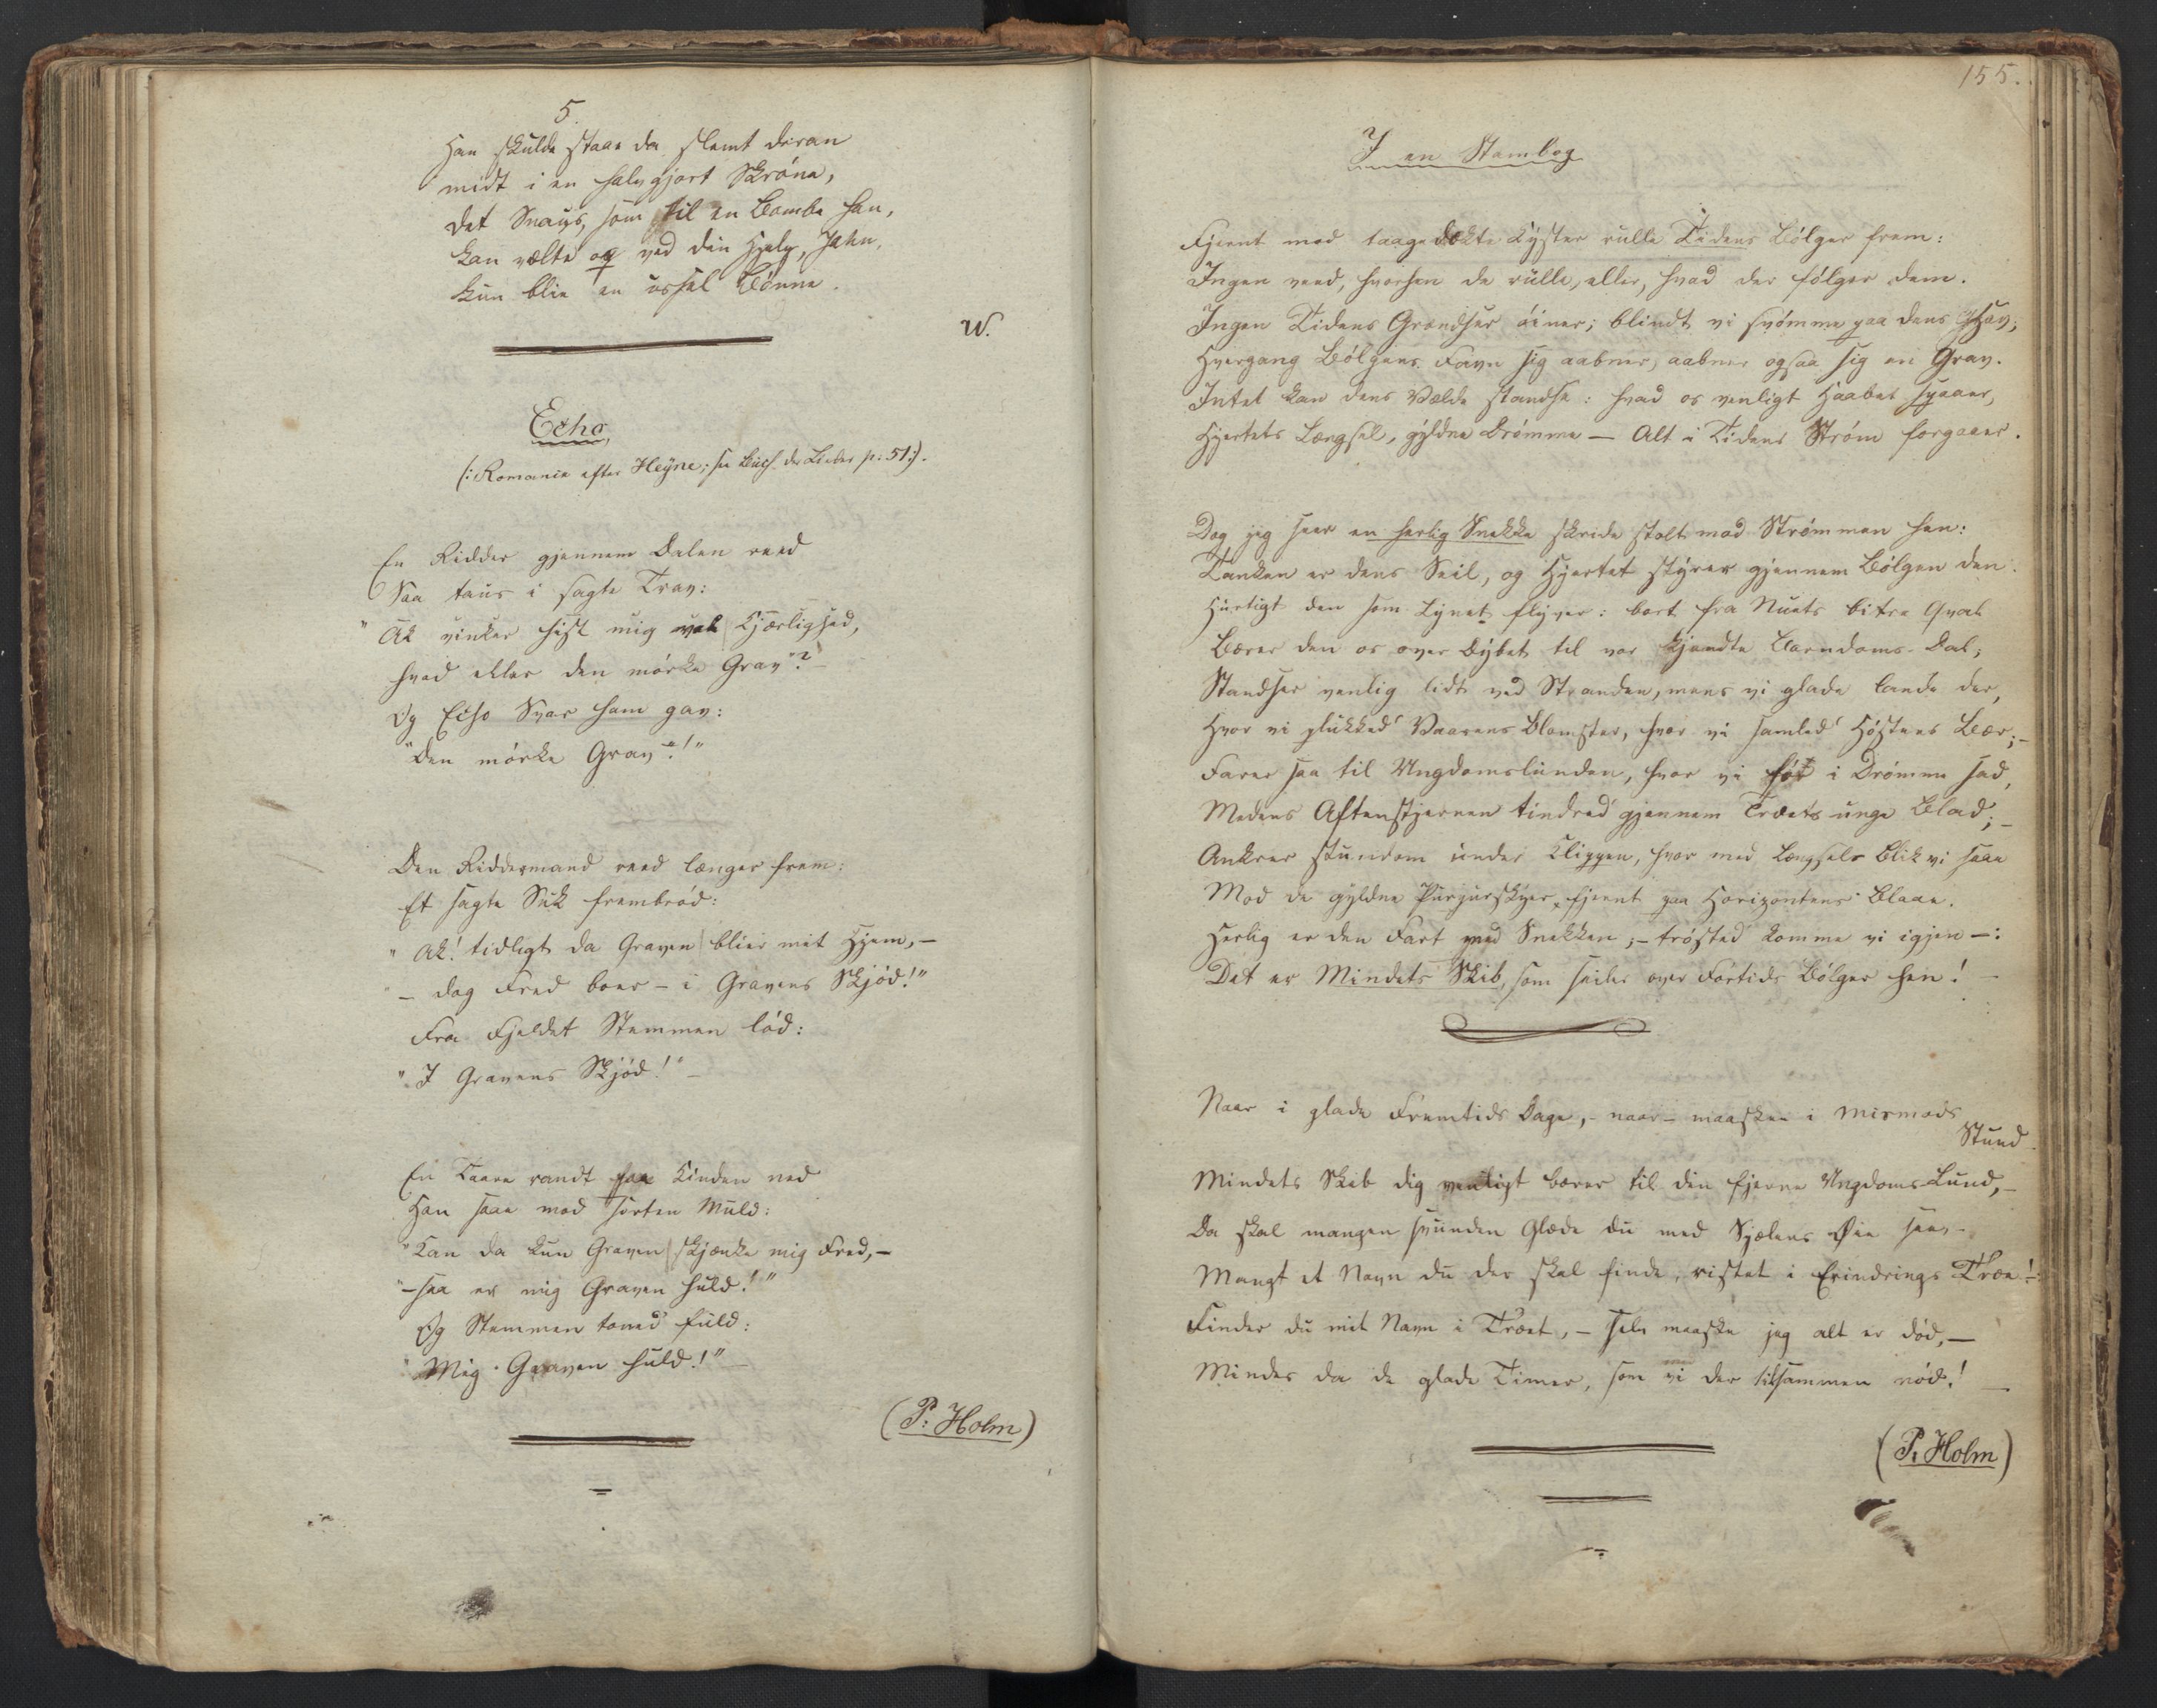 5.
Han skulde staae da slemt deran
midt i en halvgjort Skröne,
det Snaus, som til en Bombe han,
kan vælte og ved din Hjelp, Jahn,
kun blie en ussel Bönne.
W.
Echo,
(: Romanze efter Heÿne; see Buch der Lieder p: 51:).
En Ridder gjennem Dalen reed
Saa taus i sagte Trav:
"Ak vinker hist mig vel Kjærlighed,
hvad eller den mörke Grav"?
Og Echo Svar ham gav:
"Den mörke Grav!"
Den Riddermand reed længer frem:
Et sagte Suk frembröd:
"Ak! tidligt da Graven blier mit Hjem, —
"— dog Fred boer — i Gravens Skjöd!"
Fra Fjeldet Stemmen löd:
"I Gravens Skjöd!" —
En Taare randt paa Kinden ned
Han saae mod sorten Muld:
"Kan da kun Graven skjænke mig Fred, —
"— saa er mig Graven huld!"
Og Stemmen toned' fuld:
"Mig Graven huld!" —
(P: Holm)
155.
I en Stambog
Fjernt mod taagedækte Kyster rulle Tidens Bölger frem:
Ingen veed, hvorhen de rulle, eller, hvad der fölger dem.
Ingen Tidens Grændser öiner; blindt vi svömme paa dens Hav;
Hvergang Bölgens Favn sig aabner, aabner ogsaa sig en Grav.
Intet kan dens Vælde standse: hvad os venligt Haabet spaaer,
Hjertets Længsel, gyldne Drömme — Alt i Tidens Ström forgaaer.
Dog jeg seer en herlig Snekke skride stolt mod Strömmen hen:
Tanken er dens Seil, og Hjertet styrer gjennem Bölgen den.
Hurtigt den som Lynet flyver: bort fra Nuets bitre Qval
Bærer den os over Dybet til vor kjendte Barndoms-Dal;
Standser venlig lidt ved Stranden, mens vi glade lande der,
Hvor vi plukked' Vaarens Blomster, hvor vi samled' Höstens Bær; —
Farer saa til Ungdomslunden, hvor vi för i Drömme sad,
Medens Aftenstjernen tindred' gjennem Træets unge Blad; —
Ankrer stundom under Klippen, hvor med Længsels Blik vi saae
Mod de gyldne Purpurskyer, fjernt paa Horizontens Blaae.
Herlig er den Fart med Snekken; — tröstet komme vi igjen —:
Det er Mindets Skib, som seiler over Fortids Bölger hen! —
Naar i glade Fremtids Dage, — naar — maaskee i Mismods
Stund
Mindets Skib dig venligt bærer til din fjerne Ungdoms-Lund, —
Da skal mangen svunden Glæde du med Sjælens Øie see, —
Mangt et Navn du der skal finde, ristet i Erindrings Træe! —:
Finder du mit Navn i Træet, — selv maaske jeg alt er död, —
Mindes da de glade Timer, som vi der tilsammen nöd! —
(P: Holm)